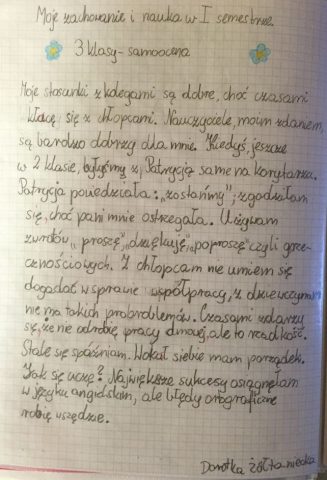 Moje zachowanie i nauka w I semestrze
3 klasy - samoocena
Moje stosunki z kolegami są dobre, choć czasami
kłócę się z chłopcami. Nauczyciele, moim zdaniem,
są bardzo dobrzy dla mnie. Kiedyś, jeszcze
w 2 klasie, byłyśmy z Patrycją same na korytarzu.
Patrycja powiedziała: „zostańmy”; zgodziłam
się, choć pani mnie ostrzegała. Używam
zwrotów „proszę”, „dziękuję”, „poproszę” czyli grze-
cznościowych. Z chłopcam nie umiem się
dogadać w sprawie współpracy, z dziewczynami
nie ma takich probroblemów. Czasami zdarzy
się, że nie odrobię pracy dmowej, ale to rzadkość.
Stale się spóźniam. Wokół siebie mam porządek.
Jak się uczę? Największe sukcesy osiągnęłam
w języku angielskim, ale błędy ortograficzne
robię wszędzie.
Dorotka Żółtaniecka